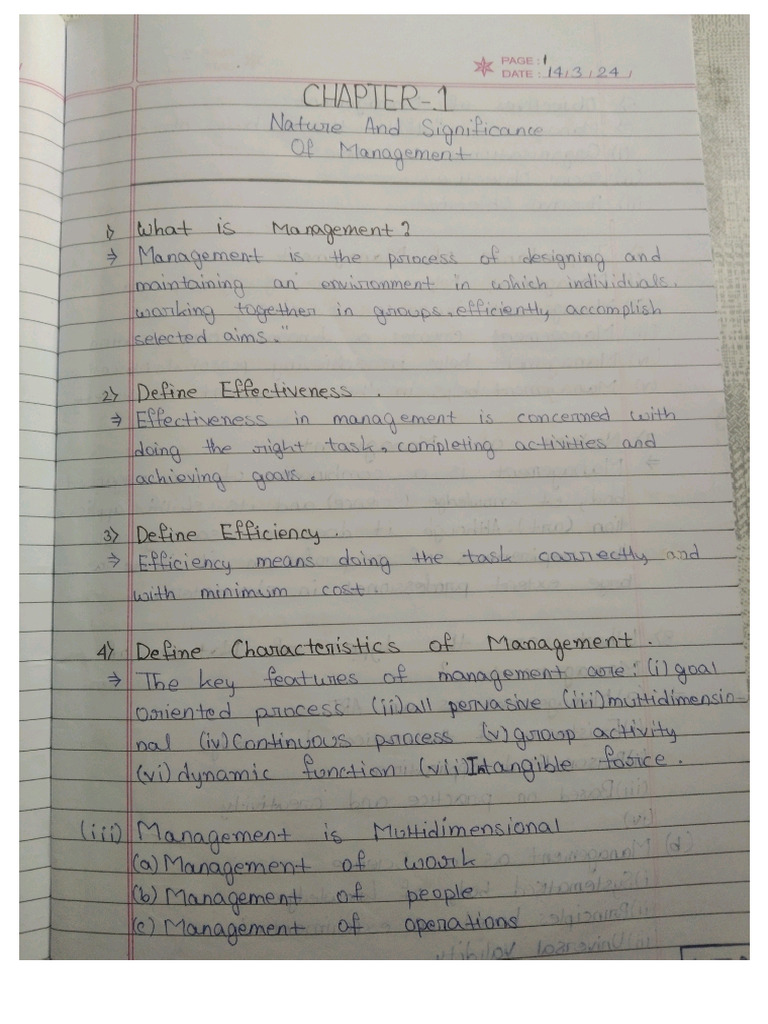 PAGE: 1
DATE: 14/3/24/
CHAPTER-1
Nature And Significance
Of Management
1) What is Management?
⇒ Management is the process of designing and
maintaining an environment in which individuals,
working together in groups, efficiently accomplish
selected aims."
2) Define Effectiveness.
⇒ Effectiveness in management is concerned with
doing the right task, completing activities and
achieving goals.
3) Define Efficiency.
⇒ Efficiency means doing the task correctly and
with minimum cost.
4) Define Characteristics of Management.
⇒ The key features of management are: (i) goal
oriented process (ii) all pervasive (iii) multidimensio-
nal (iv) Continuous process (v) group activity
(vi) dynamic function (vii) Intangible force.
(iii) Management is Multidimensional
(a) Management of work
(b) Management of people
(c) Management of operations